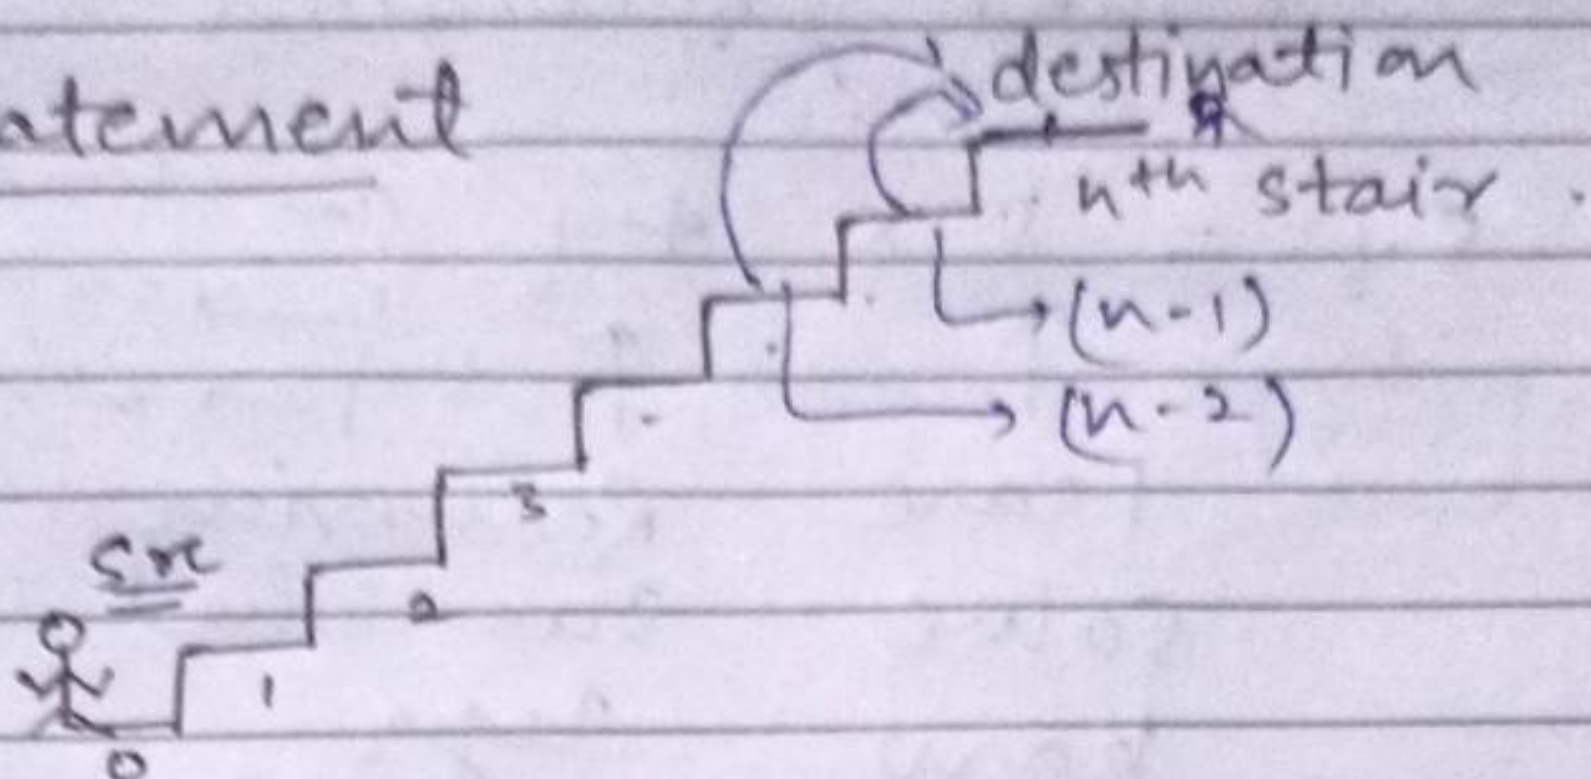 atement
destination
nth stair
(n-1)
(n-2)
3
src
2
1
0